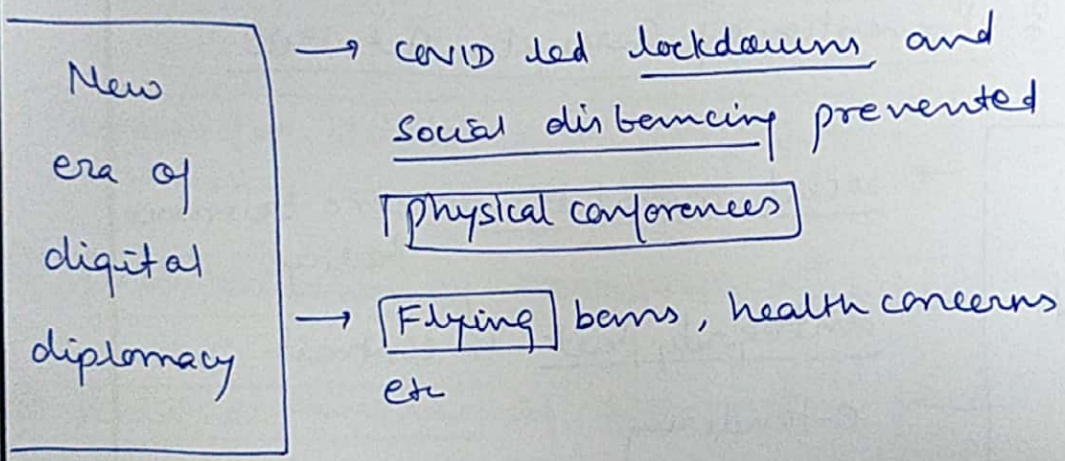 New
era of
digital
diplomacy
→ COVID led lockdowns and
social distancing prevented
physical conferences
→ Flying bans, health concerns
etc